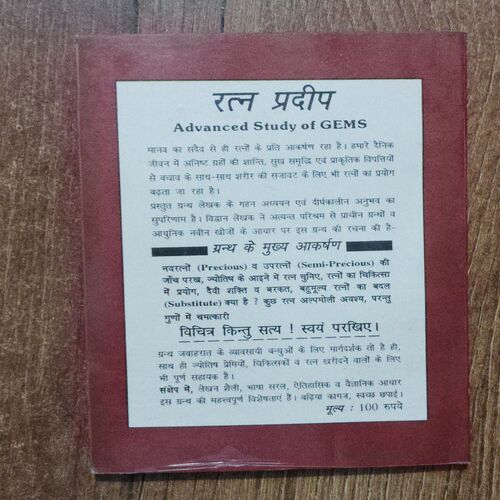 रत्न प्रदीप
Advanced Study of GEMS
मानव का सदैव से ही रत्नों के प्रति आकर्षण रहा है। हमारे दैनिक
जीवन में अनिष्ट ग्रहों की शान्ति, सुख समृद्धि एवं प्राकृतिक विपत्तियों
से बचाव के साथ-साथ शरीर की सजावट के लिए भी रत्नों का प्रयोग
बढ़ता जा रहा है।
प्रस्तुत ग्रन्थ लेखक के गहन अध्ययन एवं दीर्घकालीन अनुभव का
सुपरिणाम है। विद्वान लेखक ने अत्यन्त परिश्रम से प्राचीन ग्रन्थों व
आधुनिक नवीन खोजों के आधार पर इस ग्रन्थ की रचना की है-
ग्रन्थ के मुख्य आकर्षण
नवरत्नों (Precious) व उपरत्नों (Semi-Precious) की
जाँच परख, ज्योतिष के आइने में रत्न चुनिए, रत्नों का चिकित्सा
में प्रयोग, दैवी शक्ति व बरकत, बहुमूल्य रत्नों का बदल
(Substitute) क्या है ? कुछ रत्न अल्पमोली अवश्य, परन्तु
गुणों में चमत्कारी
विचित्र किन्तु सत्य ! स्वयं परखिए।
ग्रन्थ जवाहरात के व्यावसायी बन्धुओं के लिए मार्गदर्शक तो है ही,
साथ ही ज्योतिष प्रेमियों, चिकित्सकों व रत्न खरीदने वालों के लिए
भी पूर्ण सहायक है।
संक्षेप में, लेखन शैली, भाषा सरल, ऐतिहासिक व वैज्ञानिक आधार
इस ग्रन्थ की महत्त्वपूर्ण विशेषताएं हैं। बढ़िया कागज, स्वच्छ छपाई।
मूल्य : 100 रुपये